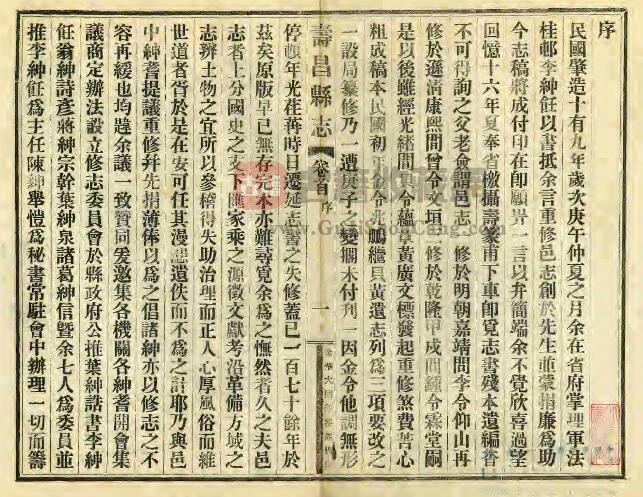 序
民國肇造十有九年歲次庚午仲夏之月余在省府掌理軍法
桂邨李紳飪以書抵余言重修邑志創於先生並蒙指廉為助
今志稿將成付印在卽願畀一言以弁簡端余不覺欣喜過望
囘憶十六年夏奉省檄攝壽篆甫下車卽覓志書殘本遺編杳
不可得詢之父老僉謂邑志一修於明朝嘉靖間李令仰山再
修於遜清康熙間曾令文垣一修於乾隆甲戌間鍾令霖堂嗣
是以後雖經光緒間令蘊章黃廣文標發起重修煞費苦心
粗成稿本民國初年金令兆鵬繼具黃遺志列為三項要改之
一設局纂修乃一遭庚子之變擱未付刊一因金令他調無形
壽昌縣志 卷首 序 一
停頓年光荏苒時日遷延志書之失修蓋已一百七十餘年於
茲矣原版早已無存完本亦難尋覓余為之憮然者久之夫邑
志者上分國史之支下匯家乘之源徵文獻考沿革備方域之
志辨土物之宜所以參稽得失助治理而正人心厚風俗而維
世道者胥於是在安可任其漫漶遺佚而不為之計耶乃與邑
中紳耆提議重修幷先捐薄俸以為之倡諸紳亦以修志之不
容再緩也均韙余議一致贊同爰邀集各機關各紳耆開會集
議商定辦法設立修志委員會於縣政府公推葉紳誥書李紳
飪翁紳詩彥蔣紳宗幹葉紳泉諸葛紳信曁余七人為委員並
推李紳飪為主任陳紳舉愷為秘書常駐會中辦理一切而籌